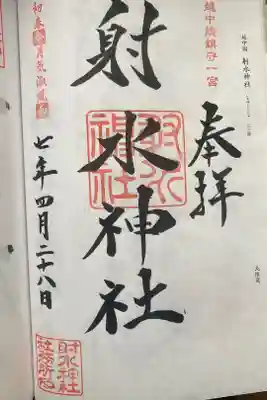 越中総鎮守一宮
奉拝
射水神社
射水神社
七年四月二十八日
射水神社
社務所印
越中国 射水神社